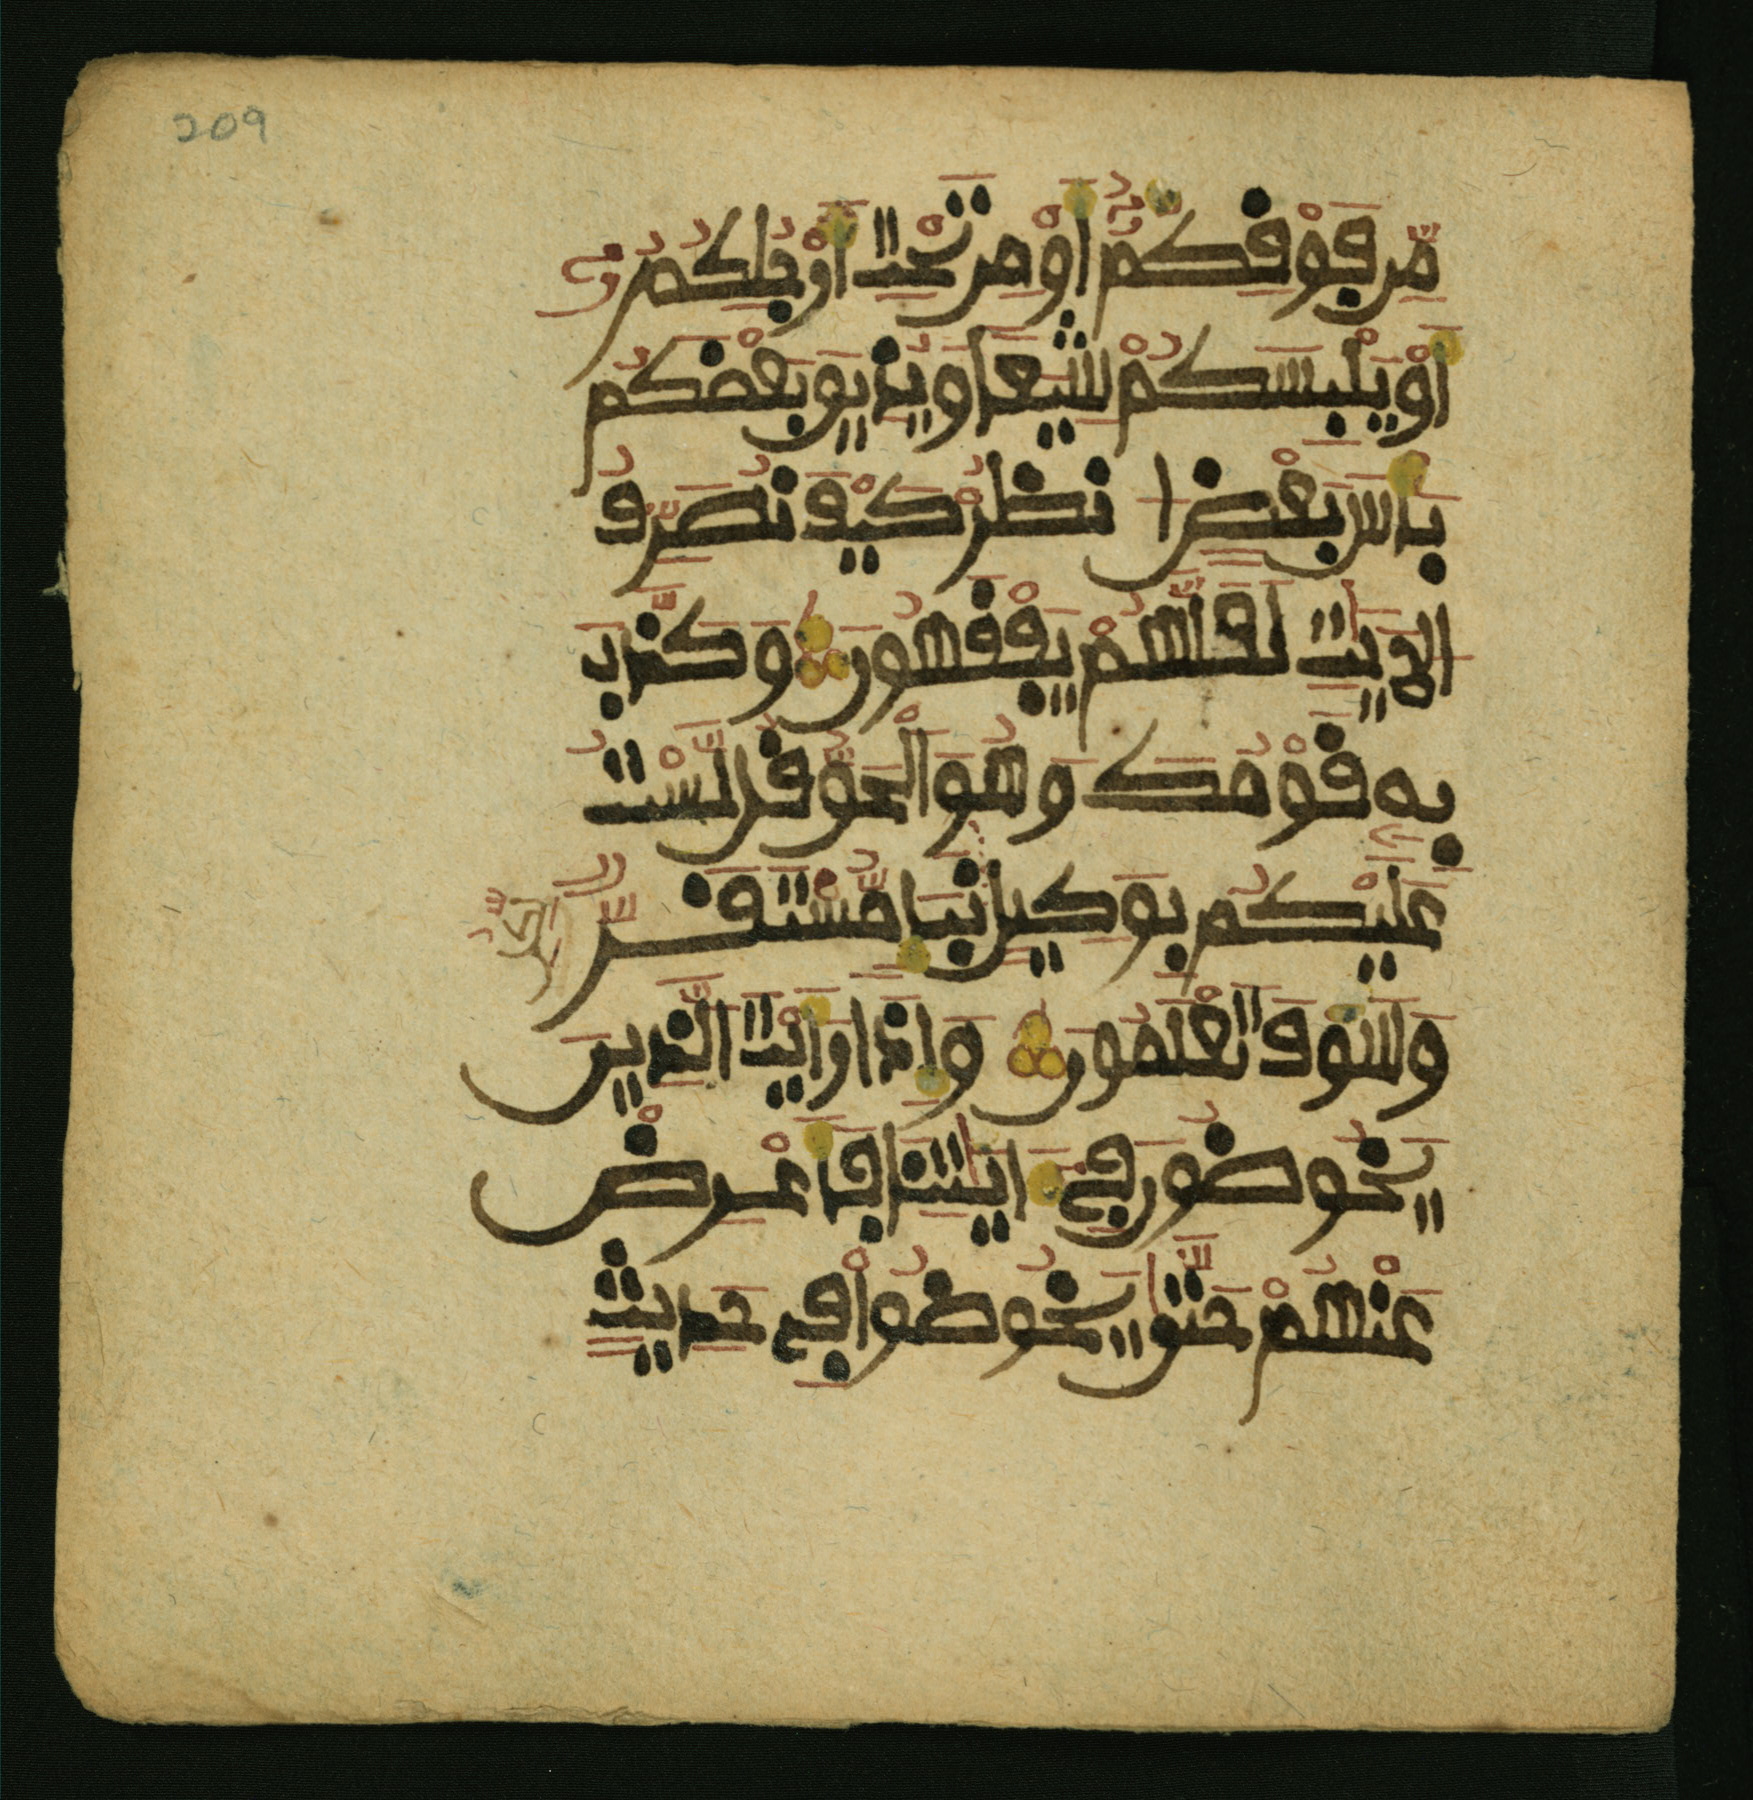 209
مِّن فَوْقِكُمُ أَوْ مِن تَحْتِ أَرْجُلِكُمُ
أَوْ يَلْبِسَكُمْ شِيَعًا وَيُذِيقَ بَعْضَكُم
بَأْسَ بَعْضٍ ا نظُرْ كَيْفَ نُصَرِّفُ
الْأَيَٰتِ لَعَلَّهُمْ يَفْقَهُونَ وَكَذَّبَ
بِهِ قَوْمُكَ وَهُوَ الْحَقُّ قُل لَّسْتُ
عَلَيْكُم بِوَكِيلٍ نَبَإٍ مُّسْتَقَرٌّ
وَسَوْفَ تَعْلَمُونَ وَإِذَا رَأَيْتَ الَّذِينَ
يَخُوضُونَ فِي ءَايَٰتِنَا فَأَعْرِضْ
عَنْهُمْ حَتَّىٰ يَخُوضُوا فِي حَدِيثٍ